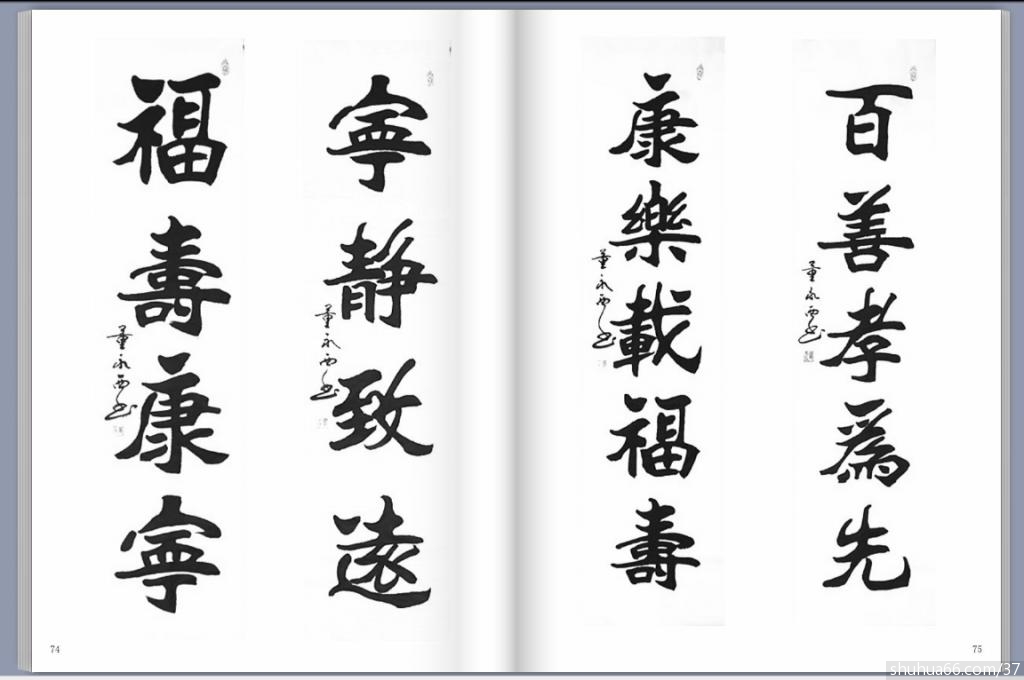 百善孝爲先
董永西书
康樂載福壽
董永西书
寧靜致遠
董永西书
福壽康寧
董永西书
74
75
shuhua66.com/37